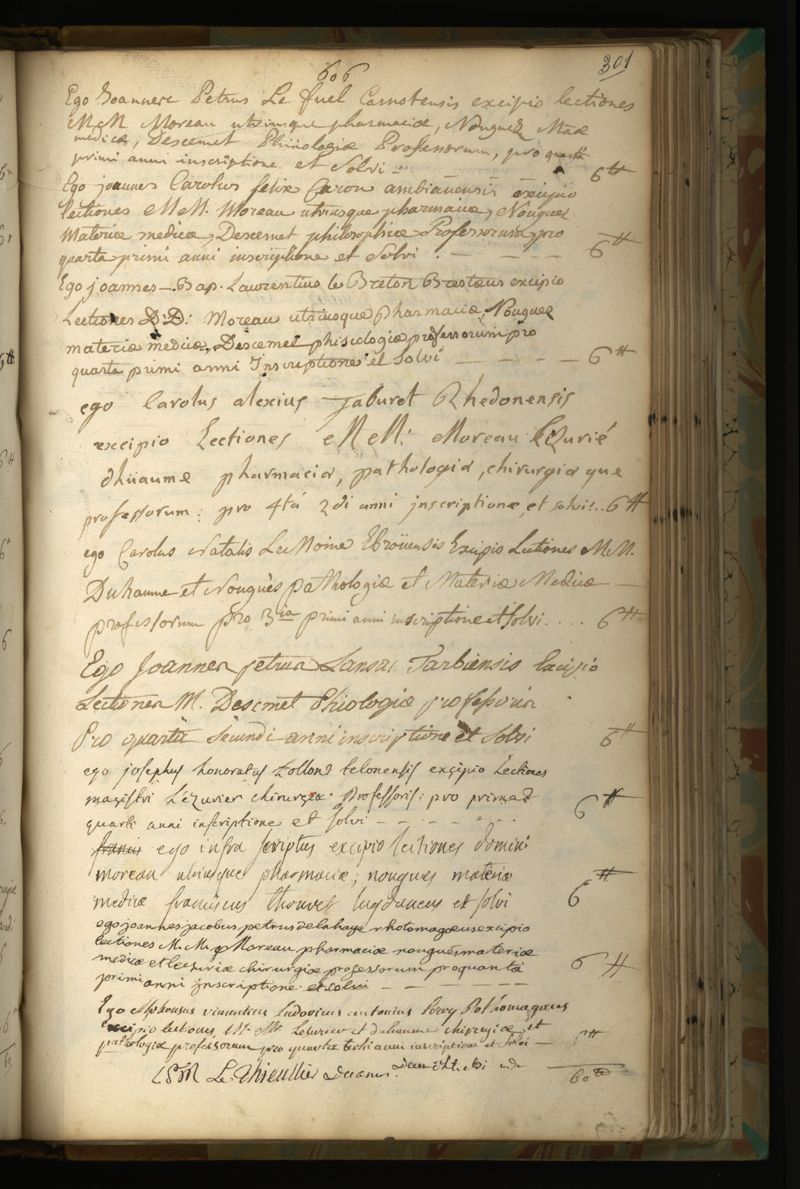 606
301
Ego Joannes Petrus Le fuel Carnotensis excipio lectiones
MM Moreau utriusque pharmaciæ, Nougués Mae
medicæ, Descemet Phisiologiæ Professorum, pro quartâ
primi anni inscriptione et Solvi — — — 6 ₶
Ego joannes Carolus felix Caron ambianensis excipio
lectiones MM. Moreau utriusque pharmaciæ, Nougues
Materiæ medicæ, Descemet philosophiæ Professorum pro
quarta primi anni inscriptione et Solvi . — — — — 6 ₶
Ego joannes – Bap. Laurentius le Breton Brestæus excipio
Lectiones D.D. Moreau utriusque pharmaciæ, Nougues
materiæ medicæ, Descemet phisiologiæ professorum pro
quarta primi anni Inscriptione et Solvi — — — — 6 ₶
ego Carolus alexius jaburet Rhedonensis
excipio Lectiones MM: Moreau lezurié
dhuaume pharmacia, pathologia, chirurgia que
professorum: pro 4tâ 2di anni inscriptione, et solvi:.. 6 ₶
ego Carolus Natalis LeMoine Ebroïcensis Excipio Lectiones MM.
Duhaume et Nouguès pathologiæ et Materiæ Medicæ —
professorum pro 3ia primi anni inscriptione et solvi.... 6 ₶
Ego Joannes petrus Tarbiensis Excipio
Lectiones M. Descemet Phiologiæ professoris
Pro quarta Secundi anni inscriptione et Solvi 6 ₶
ego josephus honoratus telonensis excipio Lectiones
magistri Lézurier chirurgiæ Professoris: pro prima
quarti anni inscriptione et solvi — — — — 6 ₶
ego infra scriptus excipio lectiones domini
moreau utriusque pharmaciæ; nougues materiæ
medicæ franciscus thouvet lugdunæus et solvi 6 ₶
ego joannes jacobus petrus delahaye rhotomagæus excipio
lectiones M. M. Moreau pharmaciæ nougués materiæ
medicæ et lezuriæ chirurgiæ professorum pro quarta
primi anni inscriptione et solvi — — — 6 ₶
Ego Alphonsus vincentius Ludovicus antonius
Excipio lectiones M. Mrs Lesurier et duhaume chirurgiæ et
pathologiæ professorum pro quarta tertii anni inscriptione et Solvi — 6 ₶
Le Thieullier Decanus 60 ₶